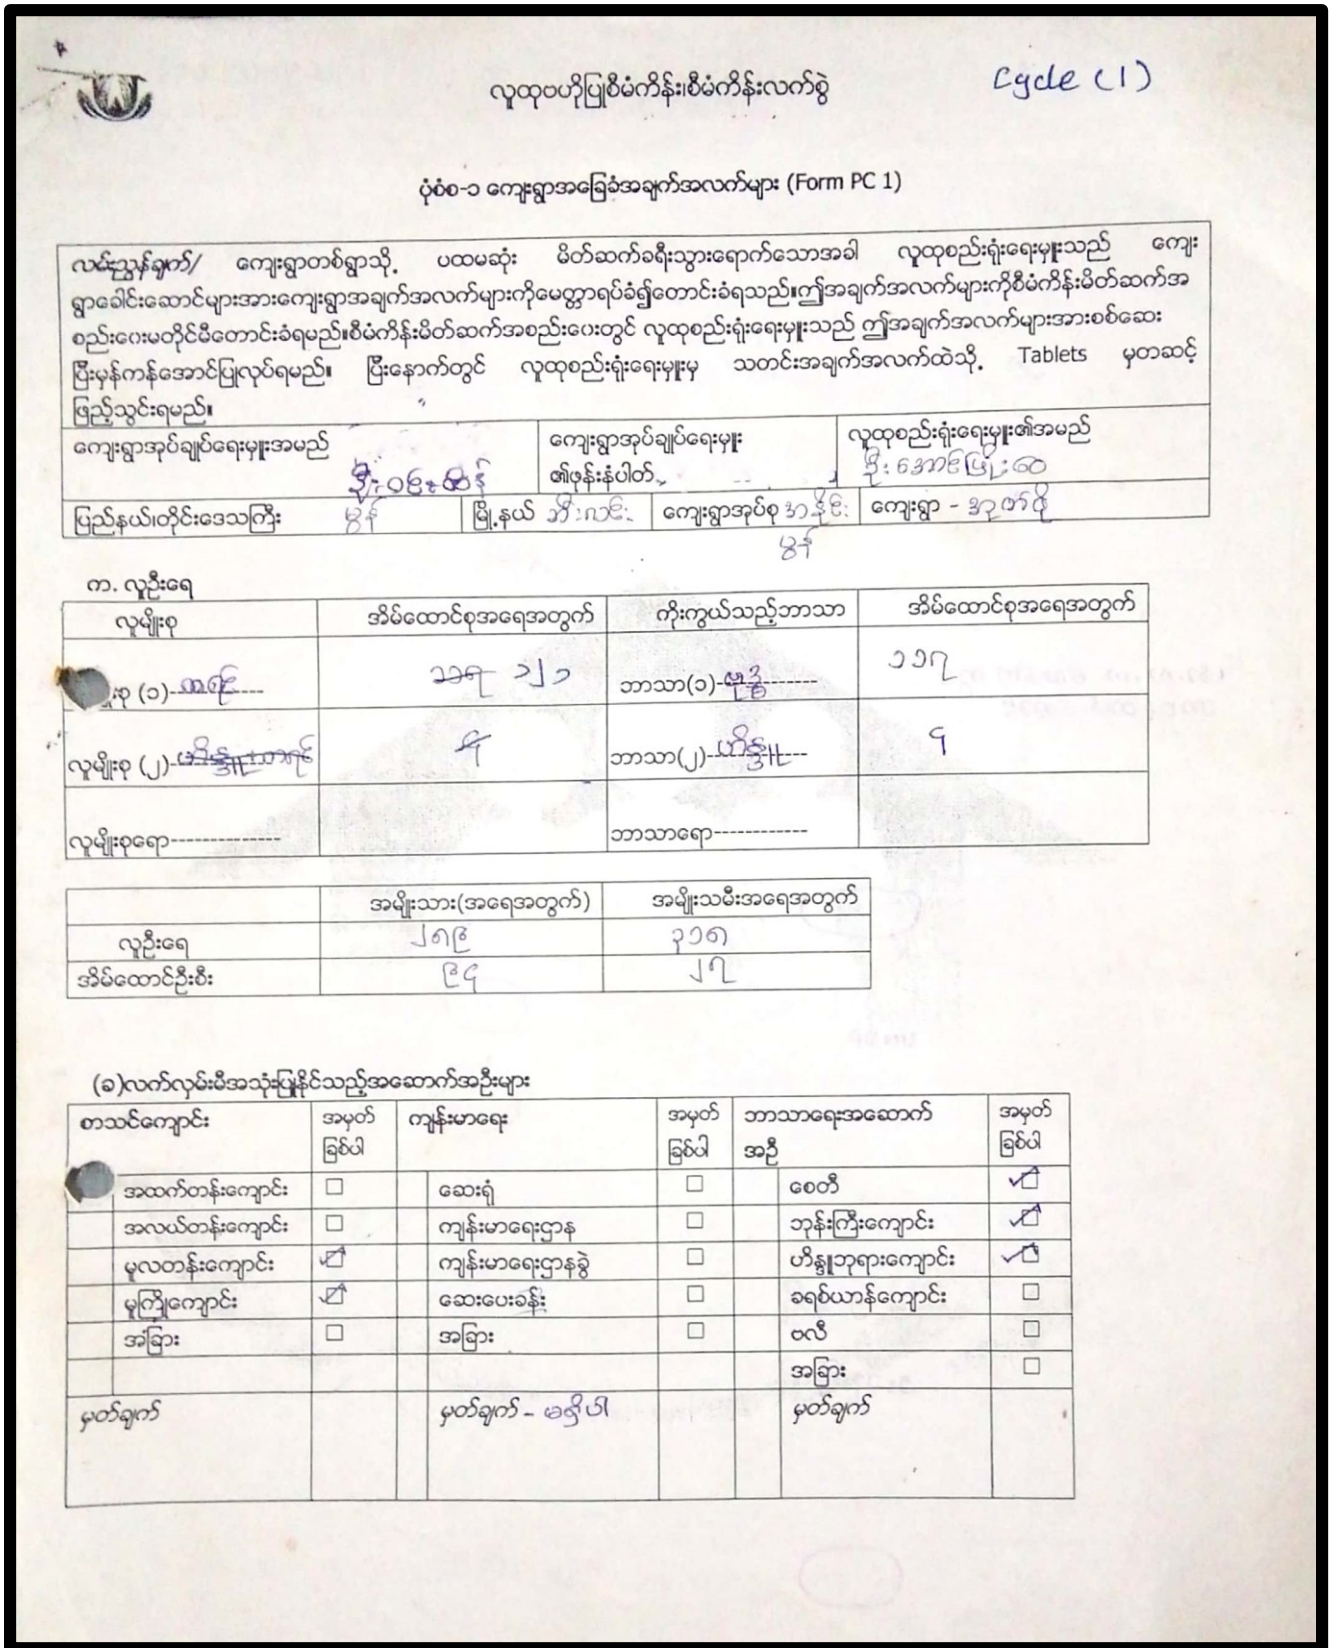 Cycle (1)
လူထုဗဟိုပြုစီမံကိန်း၊စီမံကိန်းလက်စွဲ
ပုံစံစ-၁ ကျေးရွာအခြေခံအချက်အလက်များ (Form PC 1)
လမ်းညွှန်ချက်/ ကျေးရွာတစ်ရွာသို့ ပထမဆုံး မိတ်ဆက်ခရီးသွားရောက်သောအခါ လူထုစည်းရုံးရေးမှူးသည် ကျေး
ရွာခေါင်းဆောင်များအားကျေးရွာအချက်အလက်များကိုမေတ္တာရပ်ခံ၍တောင်းခံရသည်။ဤအချက်အလက်များကိုစီမံကိန်းမိတ်ဆက်အ
စည်းဝေးမတိုင်မီတောင်းခံရမည်။စီမံကိန်းမိတ်ဆက်အစည်းဝေးတွင် လူထုစည်းရုံးရေးမှူးသည် ဤအချက်အလက်များအားစစ်ဆေး
ပြီးမှန်ကန်အောင်ပြုလုပ်ရမည်။ ပြီးနောက်တွင် လူထုစည်းရုံးရေးမှူးမှ သတင်းအချက်အလက်ထဲသို့ Tablets မှတဆင့်
ဖြည့်သွင်းရမည်။
ကျေးရွာအုပ်ချုပ်ရေးမှူးအမည် ဦးဝင်းထိန် ကျေးရွာအုပ်ချုပ်ရေးမှူး ၏ဖုန်းနံပါတ် လူထုစည်းရုံးရေးမှူး၏အမည် ဦးအောင်ဖြိုးဝေ
ပြည်နယ်၊တိုင်းဒေသကြီး မွန် မြို့နယ် ဘီးလင်း ကျေးရွာအုပ်စု မွန် ကျေးရွာ -
က. လူဦးရေ
လူမျိုးစု အိမ်ထောင်စုအရေအတွက် ကိုးကွယ်သည့်ဘာသာ အိမ်ထောင်စုအရေအတွက်
စု (၁)- ကရင် ၁၁၇ ၁၂၁ ဘာသာ(၁)- ဗုဒ္ဓ ၁၁၇
လူမျိုးစု (၂)- ဟိန္ဒူ ကရင် ၄ ဘာသာ(၂)- ဟိန္ဒူ ၄
လူမျိုးစုရော-------------- ဘာသာရော------------
အမျိုးသား(အရေအတွက်) အမျိုးသမီးအရေအတွက်
လူဦးရေ ၂၈၉ ၃၁၈
အိမ်ထောင်ဦးစီး ၉၄ ၂၇
(ခ)လက်လှမ်းမီအသုံးပြုနိုင်သည့်အဆောက်အဦးများ
စာသင်ကျောင်း အမှတ် ခြစ်ပါ ကျန်းမာရေး အမှတ် ခြစ်ပါ ဘာသာရေးအဆောက် အဦ အမှတ် ခြစ်ပါ
အထက်တန်းကျောင်း ☐ ဆေးရုံ ☐ စေတီ ☑
အလယ်တန်းကျောင်း ☐ ကျန်းမာရေးဌာန ☐ ဘုန်းကြီးကျောင်း ☑
မူလတန်းကျောင်း ☑ ကျန်းမာရေးဌာနခွဲ ☐ ဟိန္ဒူဘုရားကျောင်း ☑
မူကြိုကျောင်း ☑ ဆေးပေးခန်း ☐ ခရစ်ယာန်ကျောင်း ☐
အခြား ☐ အခြား ☐ ဗလီ ☐
အခြား ☐
မှတ်ချက် မှတ်ချက် - မရှိပါ မှတ်ချက်